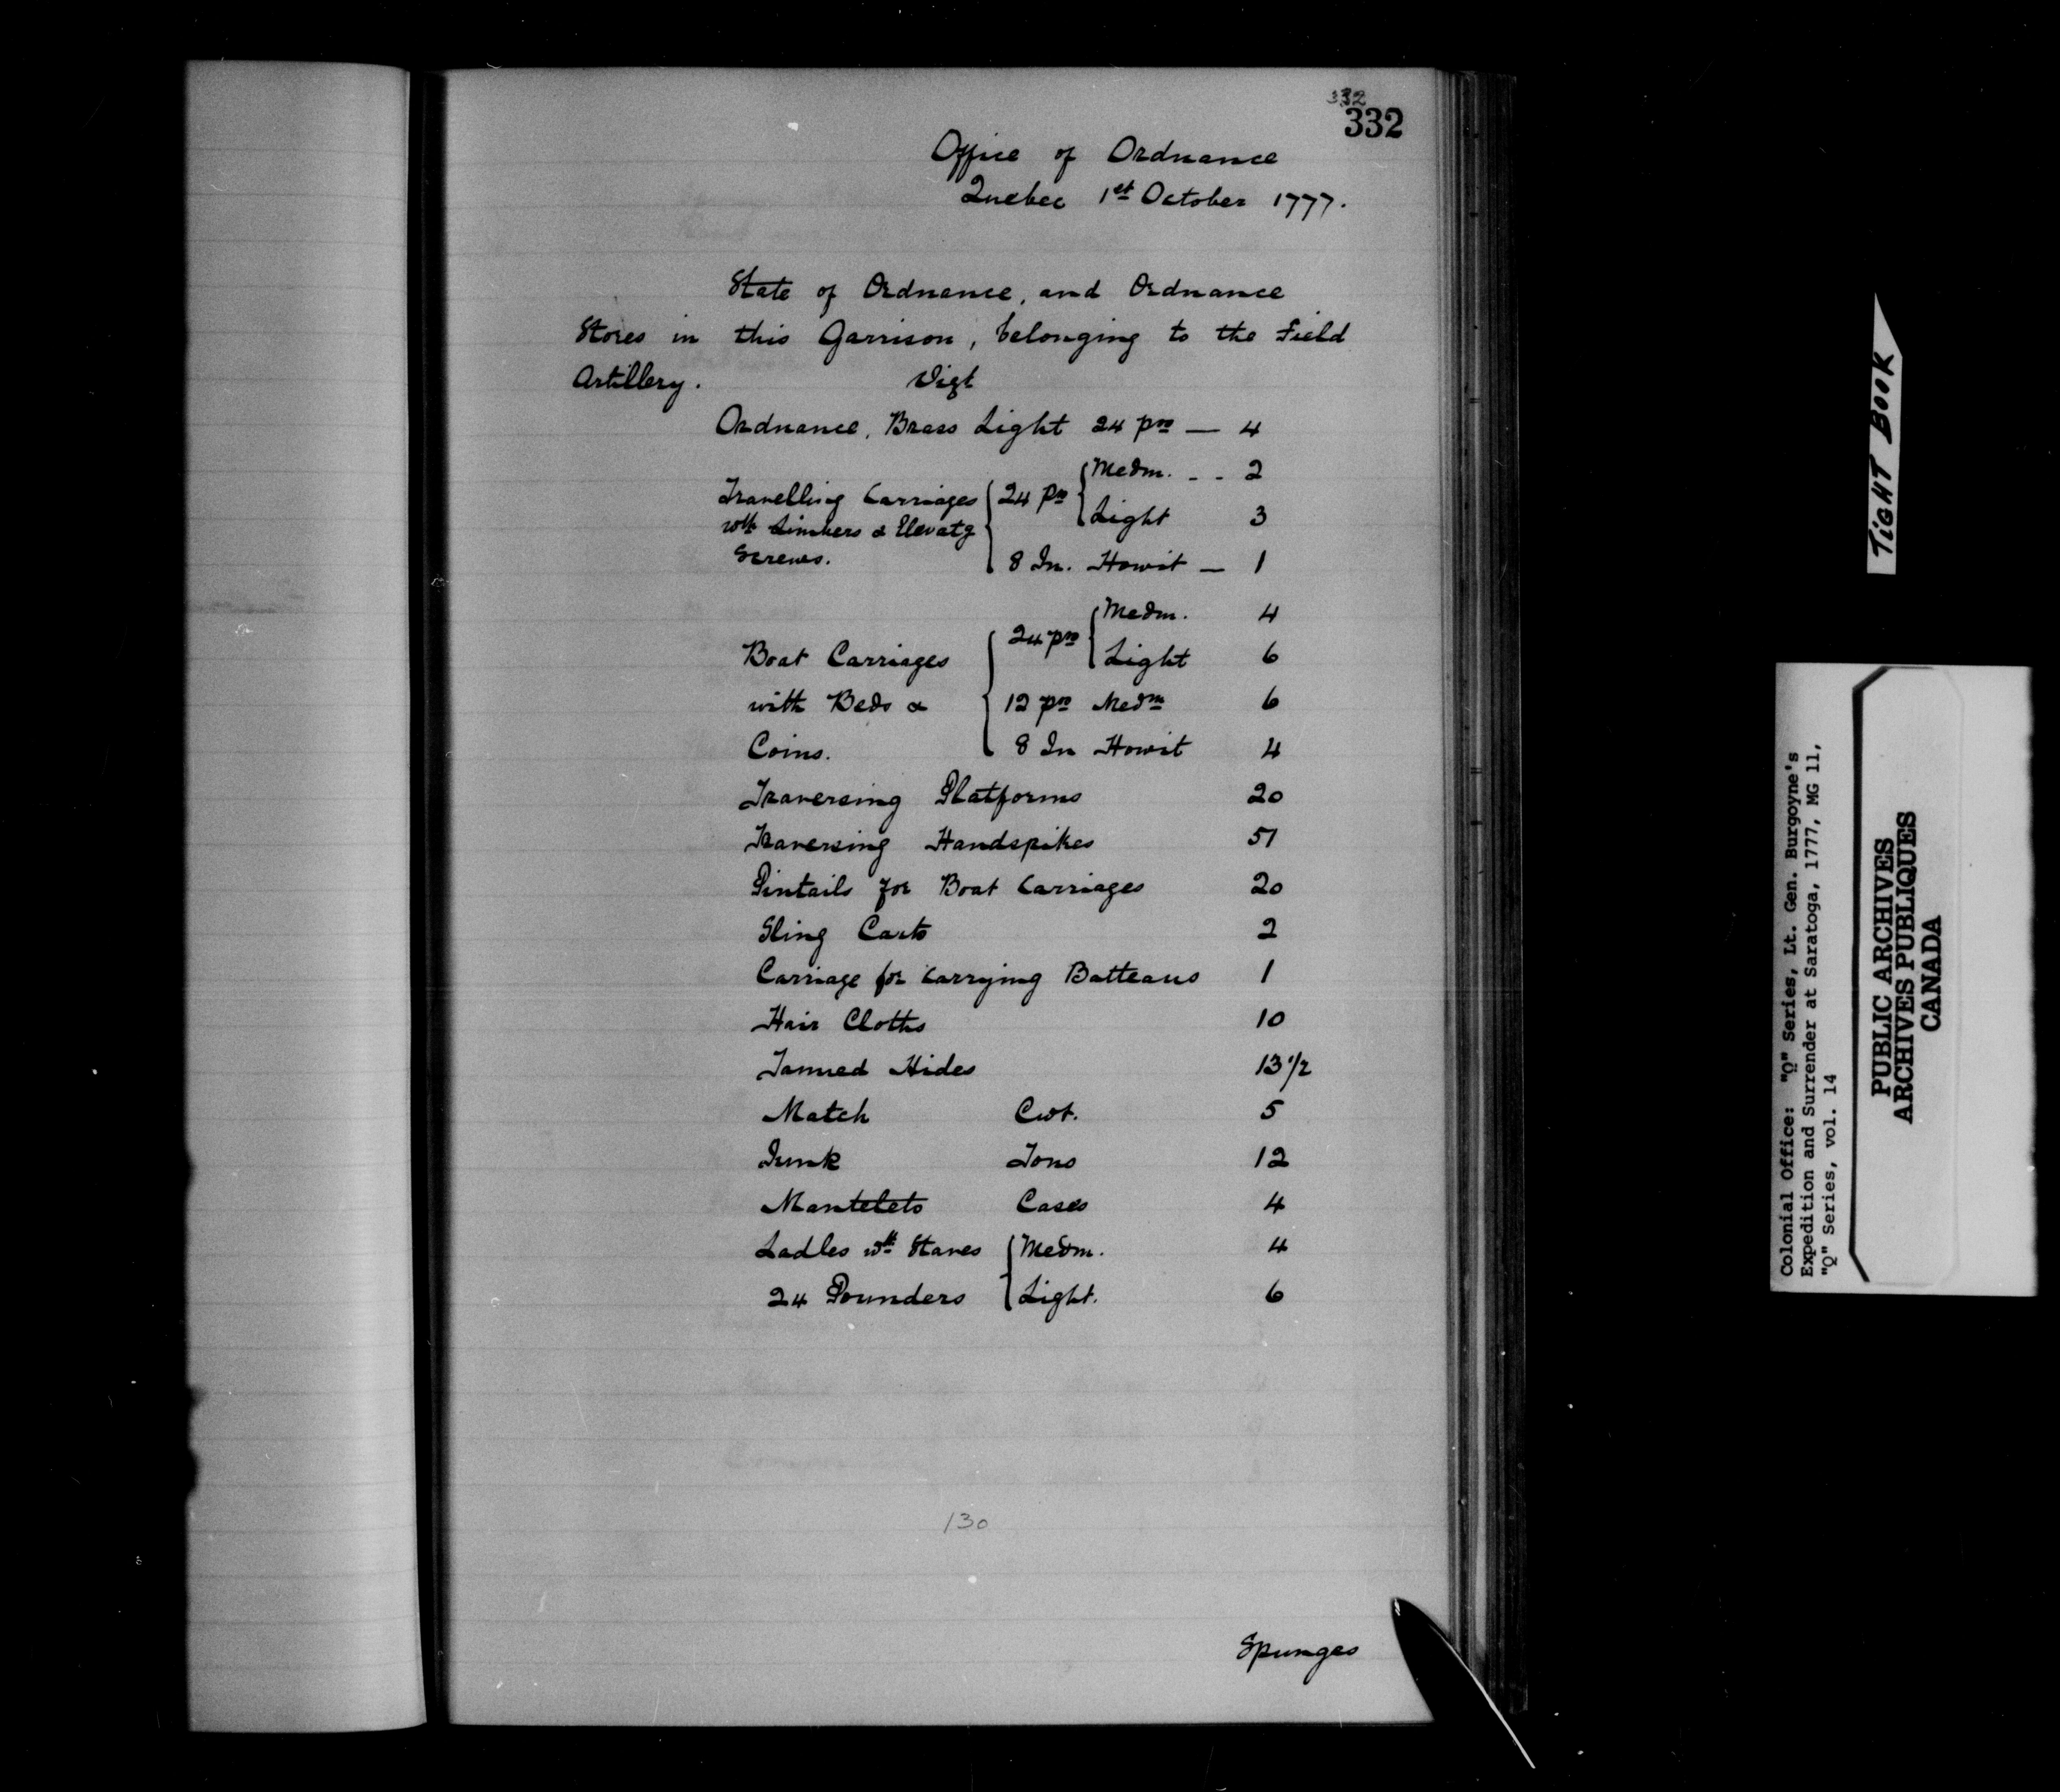 332
332
Office of Ordnance
Quebec 1st October 1777.
State of Ordnance, and Ordnance
Stores in this Garrison, belonging to the Field
Artillery. Vizt
Ordnance, Brass Light 24 prs — 4
Travelling Carriages wth Limbers & Elevatg Screws. 24 prs Medm. - - 2
Light 3
8 In. Howit — 1
Boat Carriages with Beds & Coins. 24 prs Medm. 4
Light 6
12 prs Medm 6
8 In Howit 4
Traversing Platforms 20
Traversing Handspikes 51
Pintails for Boat Carriages 20
Sling Carts 2
Carriage for Carrying Batteaus 1
Hair Cloths 10
Tanned Hides 13 1/2
Match Cwt. 5
Junk Tons 12
Mantelets Cases 4
Ladles wth Staves Medm. 4
24 Pounders Light. 6
130
Spunges
TIGHT BOOK
Colonial Office: "Q" Series, Lt. Gen. Burgoyne's
Expedition and Surrender at Saratoga, 1777, MG 11,
"Q" Series, vol. 14
PUBLIC ARCHIVES
ARCHIVES PUBLIQUES
CANADA